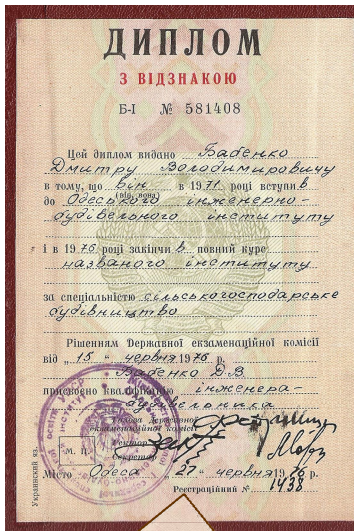 ДИПЛОМ
З ВІДЗНАКОЮ
Б-І № 581408
Цей диплом видано Бабенко
Дмитру Володимировичу
в тому, що він в 1971 році вступив
(він, вона)
до Одеського інженерно-
будівельного інституту
і в 1976 році закінчив повний курс
названого інституту
за спеціальністю сільськогосподарське
будівництво
Рішенням Державної екзаменаційної комісії
від „15“ червня 1976 р.
Бабенко Д.В.
присвоєно кваліфікацію інженера-
будівельника
Голова Державної
екзаменаційної комісії
Ректор
Секретар
М. П.
Місто Одеса „27“ червня 1976 р.
Реєстраційний № 1438
Украинский яз.